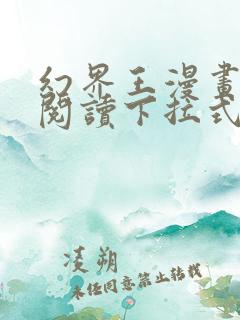 幻界王漫畫
閱讀下拉式
凌朔
未經同意禁止轉載